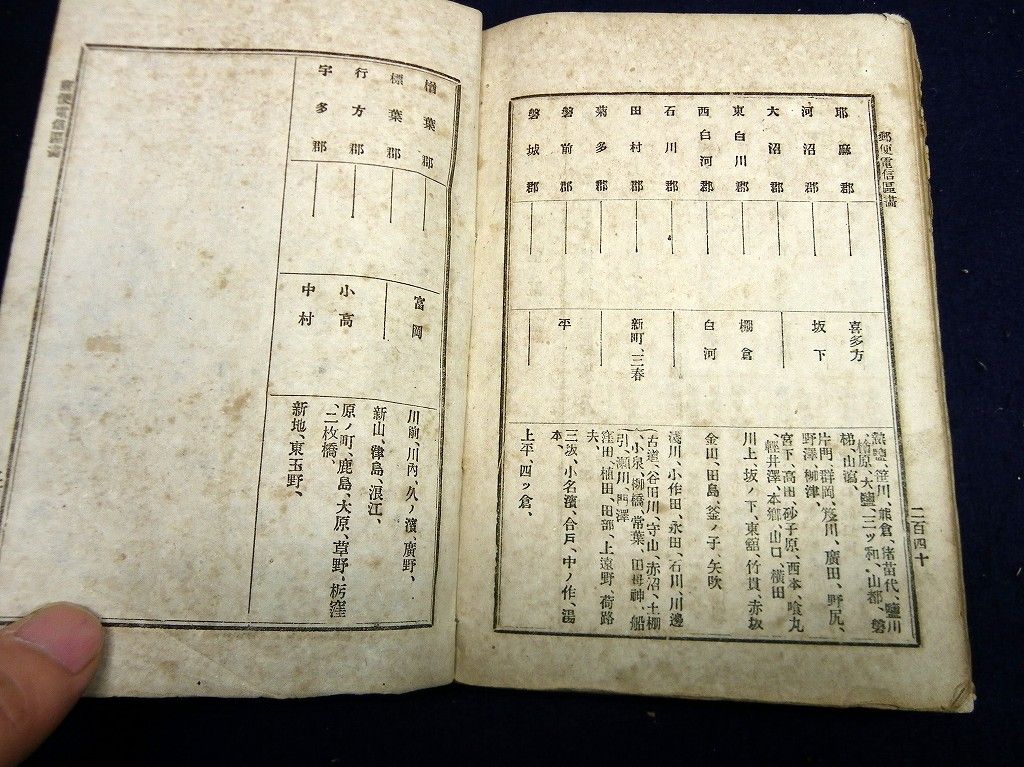 郵便電信區畫
二百四十
耶麻郡
喜多方
熱鹽、笹川、熊倉、猪苗代、鹽川
檜原、大鹽、三ツ和、山都、磐
梯、山潟、
河沼郡
坂下
片門、群岡、笈川、廣田、野尻、
野澤、柳津、
大沼郡
宮下、高田、砂子原、西本、喰丸
、輕井澤、本郷、山口、横田
東白川郡
棚倉
川上、坂ノ下、東舘、竹貫、赤坂
西白河郡
白河
金山、田島、釜ノ子、矢吹
石川郡
淺川、小作田、永田、石川、川邊
田村郡
新町、三春
古道、谷田川、守山、赤沼、土棚
、小泉、柳橋、常葉、田母神、船
引、瀬川、門澤
菊多郡
窪田、植田、田部、上遠野、荷路
夫、
磐前郡
平
三坂、小名濱、合戸、中ノ作、湯
本、
磐城郡
上平、四ッ倉、
楢葉郡
富岡
川前、川内、久ノ濱、廣野、
標葉郡
新山、津島、浪江、
行方郡
小高
原ノ町、鹿島、大原、草野、栃窪
、二枚橋、
宇多郡
中村
新地、東玉野、